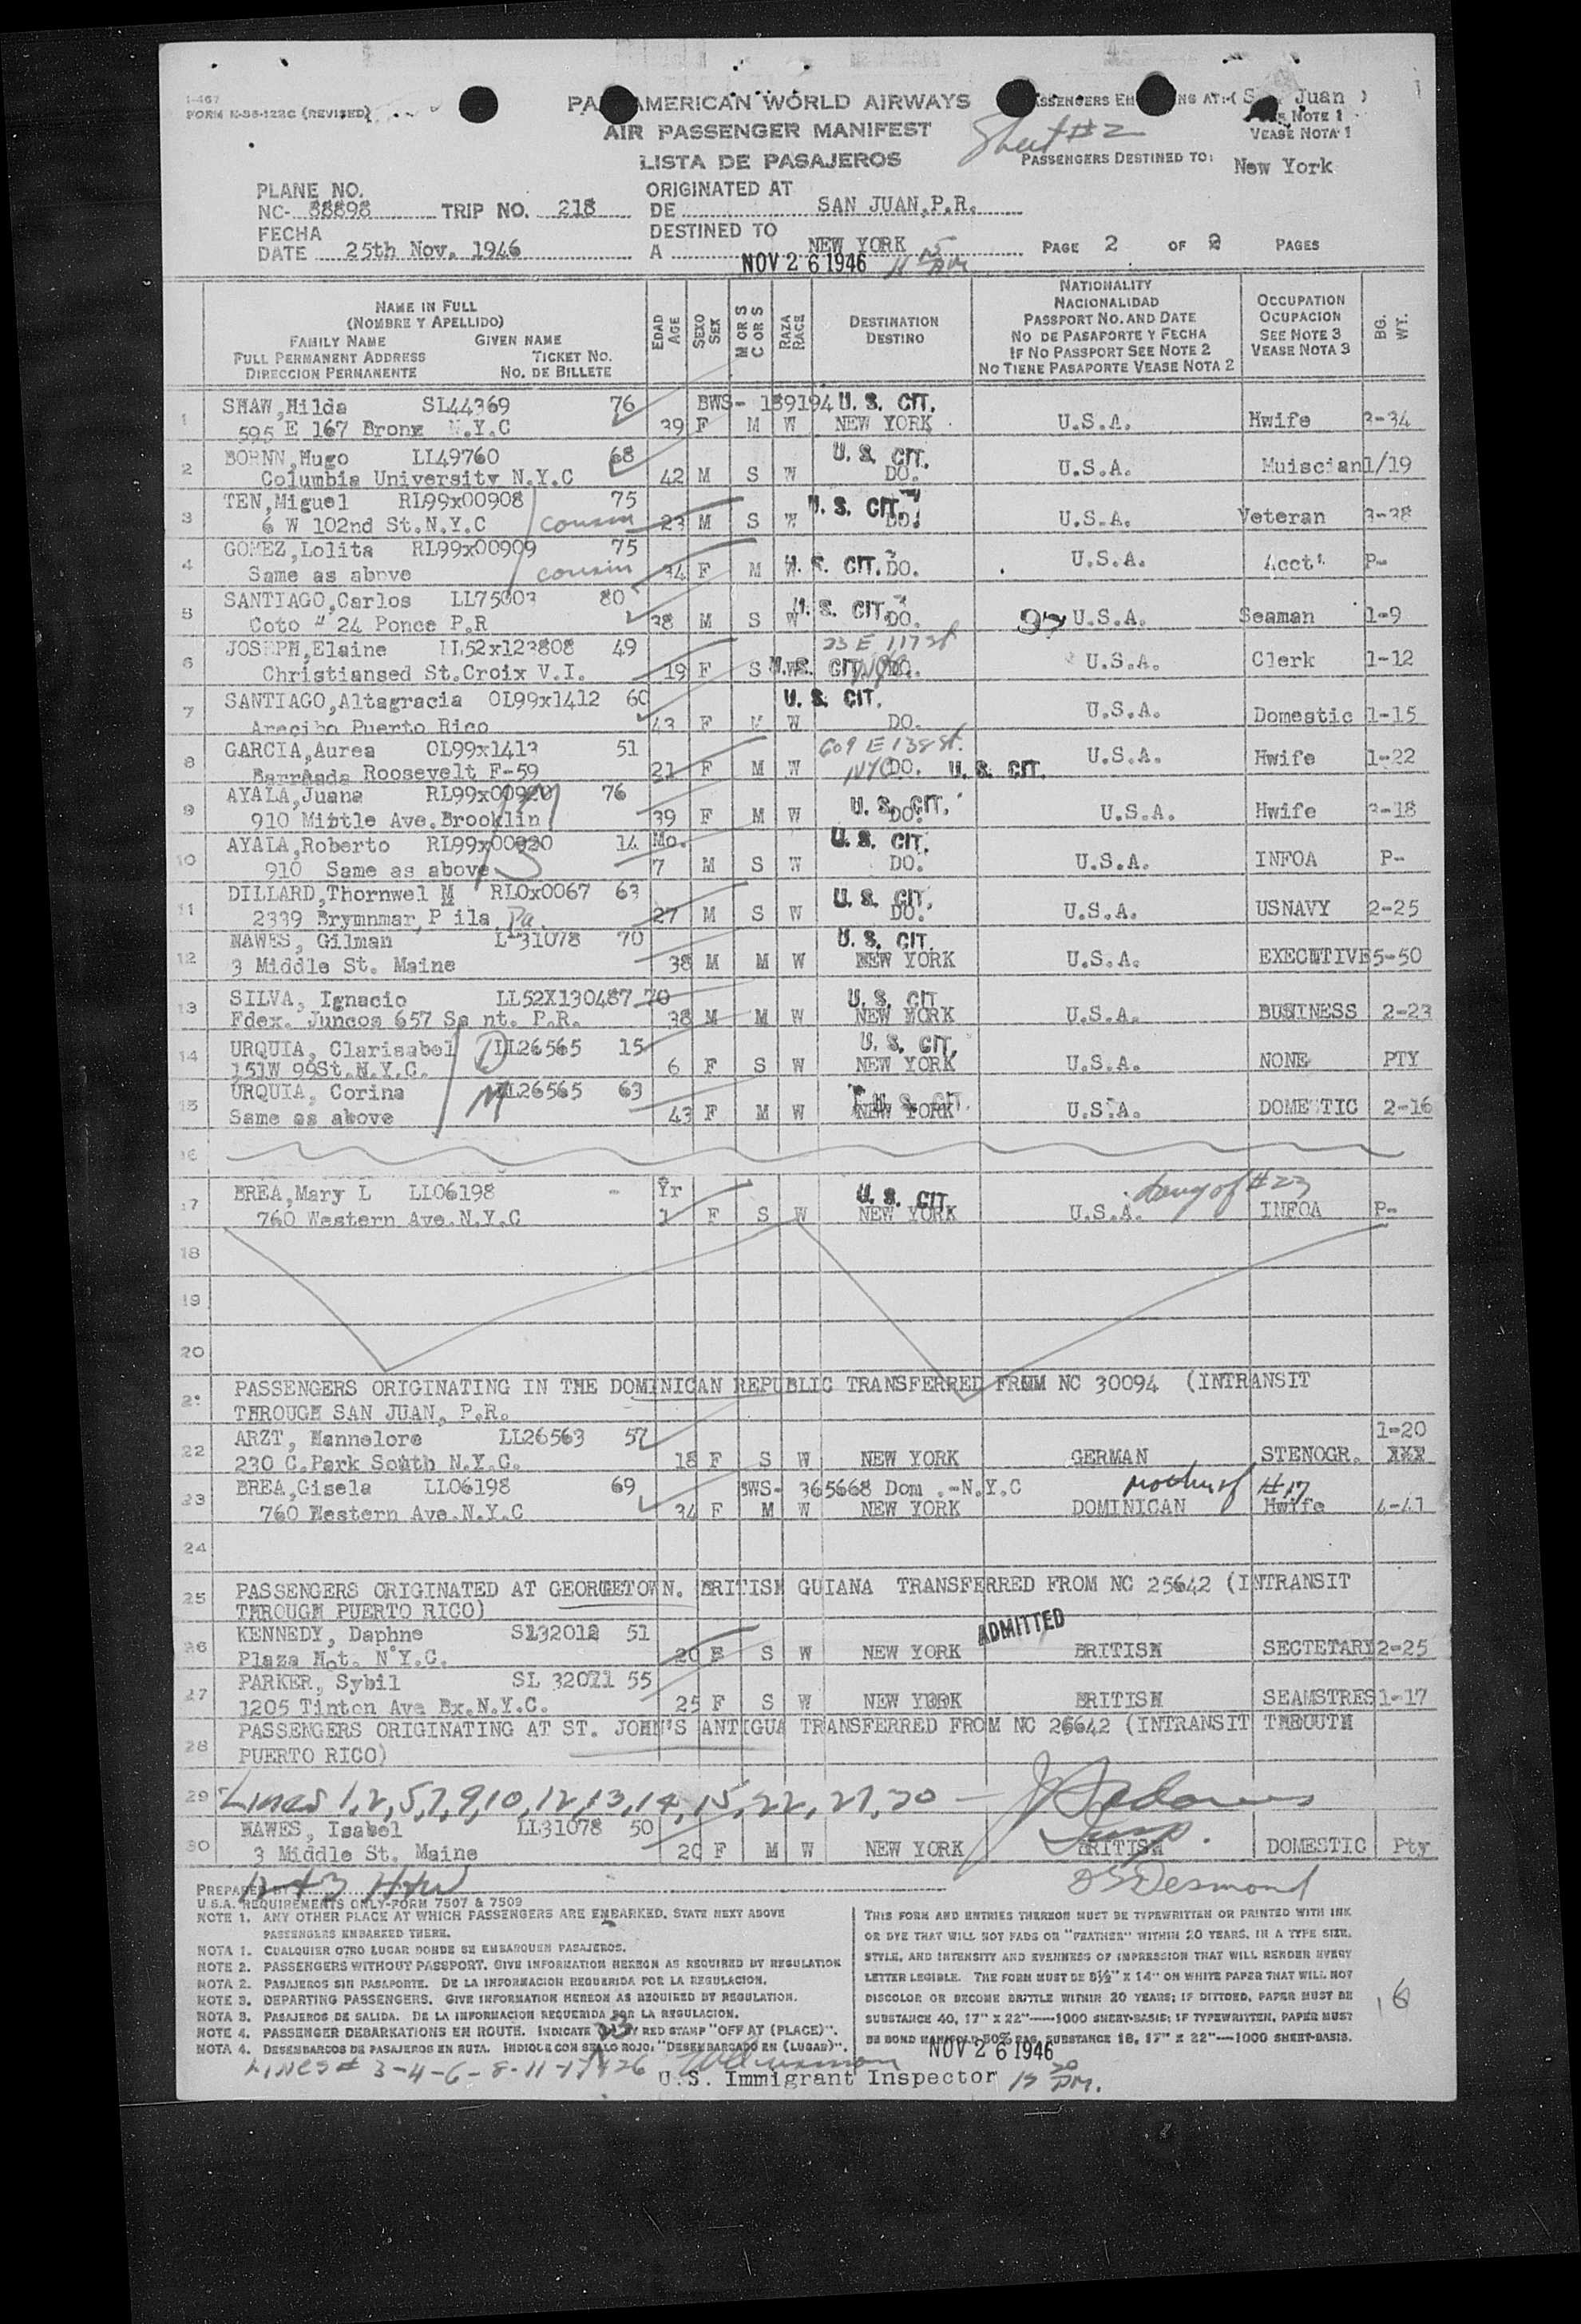 I-467
FORM M-36-122C (REVISED)
PAN AMERICAN WORLD AIRWAYS
AIR PASSENGER MANIFEST
LISTA DE PASAJEROS
Sheet #2
Juan )
NOTE 1
VEASE NOTA 1
PASSENGERS DESTINED TO: New York
PLANE NO.
NC- 88898 TRIP NO. 218
ORIGINATED AT
DE SAN JUAN,P.R.
FECHA
DATE 25th Nov. 1946
DESTINED TO
A NEW YORK
PAGE 2 OF 2 PAGES
NOV 26 1946
NAME IN FULL
(NOMBRE Y APELLIDO)
FAMILY NAME GIVEN NAME
FULL PERMANENT ADDRESS TICKET NO.
DIRECCION PERMANENTE NO. DE BILLETE
EDAD AGE
SEXO SEX
M OR S C OR S
RAZA RACE
DESTINATION
DESTINO
NATIONALITY
NACIONALIDAD
PASSPORT NO. AND DATE
NO DE PASAPORTE Y FECHA
IF NO PASSPORT SEE NOTE 2
NO TIENE PASAPORTE VEASE NOTA 2
OCCUPATION
OCUPACION
SEE NOTE 3
VEASE NOTA 3
BG. WT.
1 SHAW,Hilda SL44369 76 BWS- 189194 U. S. CIT.
595 E 167 Bronx N.Y.C 39 F M W NEW YORK U.S.A. Hwife 3-34
2 BORNN,Hugo LL49760 68 U. S. CIT.
Columbia University N.Y.C 42 M S W DO. U.S.A. Muiscian 1/19
3 TEN,Miguel RL99x00908 75 U. S. CIT.
6 W 102nd St.N.Y.C cousin 23 M S W DO. U.S.A. Veteran 3-38
4 GOMEZ,Lolita RL99x00909 75
Same as abnve cousin 34 F M W U. S. CIT. DO. U.S.A. Acct. P-
5 SANTIAGO,Carlos LL75003 80 U. S. CIT.
Coto # 24 Ponce P.R 38 M S W DO. U.S.A. Seaman 1-9
6 JOSEPH,Elaine LL52x123808 49 23 E 117 St
Christiansed St.Croix V.I. 19 F S W U. S. CIT. NYC DO. U.S.A. Clerk 1-12
7 SANTIAGO,Altagracia OL99x1412 60 U. S. CIT.
Arecibo Puerto Rico 43 F M W DO. U.S.A. Domestic 1-15
8 GARCIA,Aurea OL99x1413 51 609 E 138 St.
Barraada Roosevelt F-59 21 F M W NYC DO. U. S. CIT. U.S.A. Hwife 1-22
9 AYALA,Juana RL99x00920 76 U. S. CIT.
910 Mirtle Ave.Brooklin M 39 F M W DO. U.S.A. Hwife 3-18
10 AYALA,Roberto RL99x00920 14 Mo. U. S. CIT.
910 Same as above 7 M S W DO. U.S.A. INFOA P-
11 DILLARD,Thornwel M RL0x0067 63 U. S. CIT.
2339 Brymnmar,P ila Pa. 27 M S W DO. U.S.A. USNAVY 2-25
12 HAWES, Gilman L 31078 70 U. S. CIT.
3 Middle St. Maine 38 M M W NEW YORK U.S.A. EXECUTIVE 5-50
13 SILVA, Ignacio LL52X130487 70 U. S. CIT
Fdex. Juncos 657 Sa nt. P.R. 38 M M W NEW YORK U.S.A. BUSINESS 2-23
14 URQUIA, Clarisabel D LL26565 15 U. S. CIT.
151W 99St.N.Y.C. 6 F S W NEW YORK U.S.A. NONE PTY
15 URQUIA, Corina M LL26565 63 U. S. CIT.
Same as above 43 F M W NEW YORK U.S.A. DOMESTIC 2-16
16
17 BREA,Mary L LL06198 - Yr U. S. CIT. daug of #23
760 Western Ave.N.Y.C 1 F S W NEW YORK U.S.A. INFOA P-
18
19
20
21 PASSENGERS ORIGINATING IN THE DOMINICAN REPUBLIC TRANSFERRED FROM NC 30094 (INTRANSIT
THROUGH SAN JUAN, P.R.
22 ARZT, Hannelore LL26563 57 1-20
230 C.Park South N.Y.C. 18 F S W NEW YORK GERMAN STENOGR. XXX
23 BREA,Gisela LL06198 69 BWS- 365668 Dom .-N.Y.C mother of #17
760 Western Ave.N.Y.C 34 F M W NEW YORK DOMINICAN Hwife 4-41
24
25 PASSENGERS ORIGINATED AT GEORGETOWN. BRITISH GUIANA TRANSFERRED FROM NC 25642 (INTRANSIT
THROUGH PUERTO RICO)
26 KENNEDY, Daphne SL32012 51 ADMITTED
Plaza Hot. N.Y.C. 20 F S W NEW YORK BRITISH SECTETARY 2-25
27 PARKER, Sybil SL 32011 55
1205 Tinton Ave Bx.N.Y.C. 25 F S W NEW YORK BRITISH SEAMSTRES 1-17
28 PASSENGERS ORIGINATING AT ST. JOHN'S ANTIGUA TRANSFERRED FROM NC 25642 (INTRANSIT THROUTH
PUERTO RICO)
29 Lines 1,2,5,7,9,10,12,13,14,15,22,27,30 -
30 HAWES, Isabel LL31078 50
3 Middle St. Maine 20 F M W NEW YORK BRITISH DOMESTIC Pty
Insp.
PREPARED BY
Desmond
U.S.A. REQUIREMENTS ONLY-FORM 7507 & 7509
NOTE 1. ANY OTHER PLACE AT WHICH PASSENGERS ARE EMBARKED, STATE NEXT ABOVE
PASSENGERS EMBARKED THERE.
NOTA 1. CUALQUIER OTRO LUGAR DONDE SE EMBARQUEN PASAJEROS.
NOTE 2. PASSENGERS WITHOUT PASSPORT. GIVE INFORMATION HEREON AS REQUIRED BY REGULATION
NOTA 2. PASAJEROS SIN PASAPORTE. DE LA INFORMACION REQUERIDA POR LA REGULACION.
NOTE 3. DEPARTING PASSENGERS. GIVE INFORMATION HEREON AS REQUIRED BY REGULATION.
NOTA 3. PASAJEROS DE SALIDA. DE LA INFORMACION REQUERIDA POR LA REGULACION.
NOTE 4. PASSENGER DEBARKATIONS EN ROUTE. INDICATE BY RED STAMP "OFF AT (PLACE)".
NOTA 4. DESEMBARCOS DE PASAJEROS EN RUTA. INDIQUE CON SELLO ROJO: "DESEMBARCADO EN (LUGAR)".
THIS FORM AND ENTRIES THEREON MUST BE TYPEWRITTEN OR PRINTED WITH INK
OR DYE THAT WILL NOT FADE OR "FEATHER" WITHIN 20 YEARS, IN A TYPE SIZE,
STYLE, AND INTENSITY AND EVENNESS OF IMPRESSION THAT WILL RENDER EVERY
LETTER LEGIBLE. THE FORM MUST BE 8½" X 14" ON WHITE PAPER THAT WILL NOT
DISCOLOR OR BECOME BRITTLE WITHIN 20 YEARS; IF DITTOED, PAPER MUST BE
SUBSTANCE 40, 17" X 22"—1000 SHEET-BASIS; IF TYPEWRITTEN, PAPER MUST
BE BOND MANIFOLD 50% RAG, SUBSTANCE 18, 17" X 22"—1000 SHEET-BASIS.
NOV 26 1946
LINES # 3-4-6-8-11-17 23 26
U.S. Immigrant Inspector